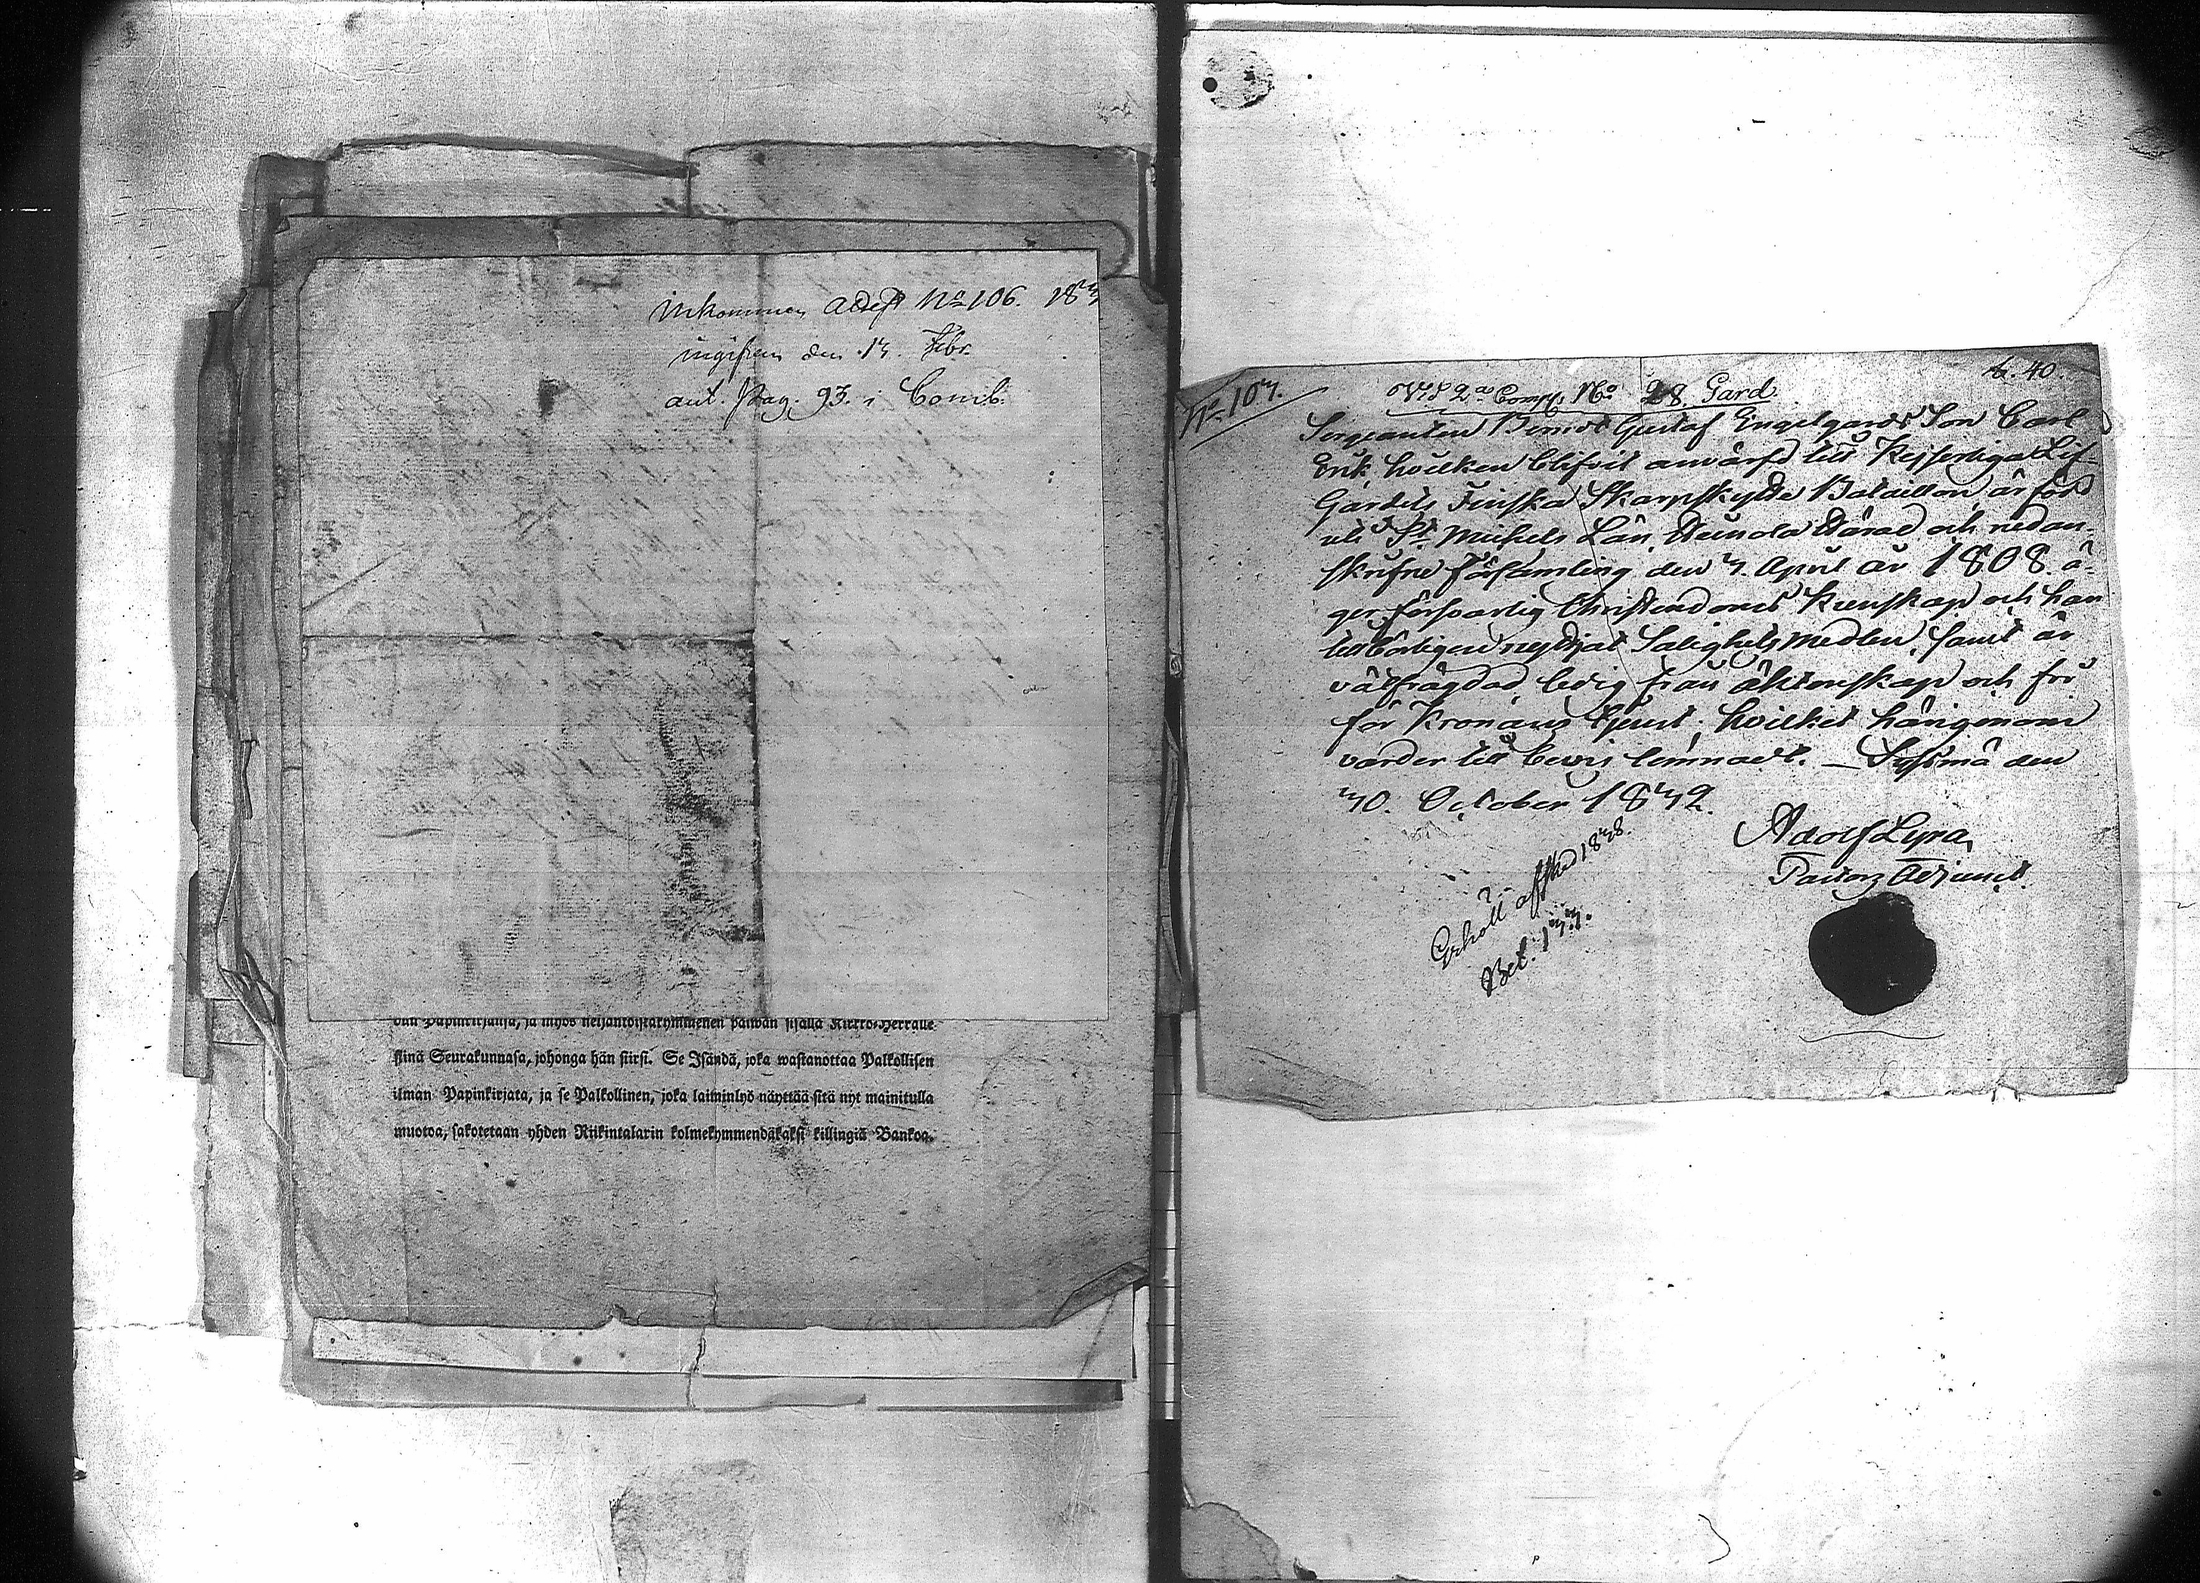 Inkommen attest No 106. 183
ingifven den 13. Febr.
ant. Pag. 93. i Comb.
Papinkirjansa, ja myös neljäntoistakymmenen päiwän sisällä Kirkko-Herralle
siinä Seurakunnasa, johonga hän siirsi. Se Isändä, joka wastanottaa Palkollisen
ilman Papinkirjata, ja se Palkollinen, joka laiminlyö näyttää sitä nyt mainitulla
muotoa, sakotetaan yhden Riikintalarin kolmekymmendäkaksi killingiä Bankoa.
No 103.
40.
Vid 2a Comp. No 28 Gard.
Sergeanten Gustaf Engelgards Son Carl
Erik, hvilken blifvit anvärfd till Kejserliga Lif-
Gardets Finska Skarpskytte Bataillon, är född
uti St Michels Län, Heinola Härad och nedan-
skrifne Församling den 3. April år 1808. ä-
ger försvarlig Christendoms Kunskap och har
tillbörligen nyttjat Salighetsmedlen, samt är
välfrägdad, ledig från äktenskap och fri
för Kronans tjenst; hvilket härigenom
varder till bevis lemnadt. _ Sysmä den
30. October 1832.
Adolf Lyra,
Pastors Adjunct.
Erhöll afsked 1838.
Bet. 133.